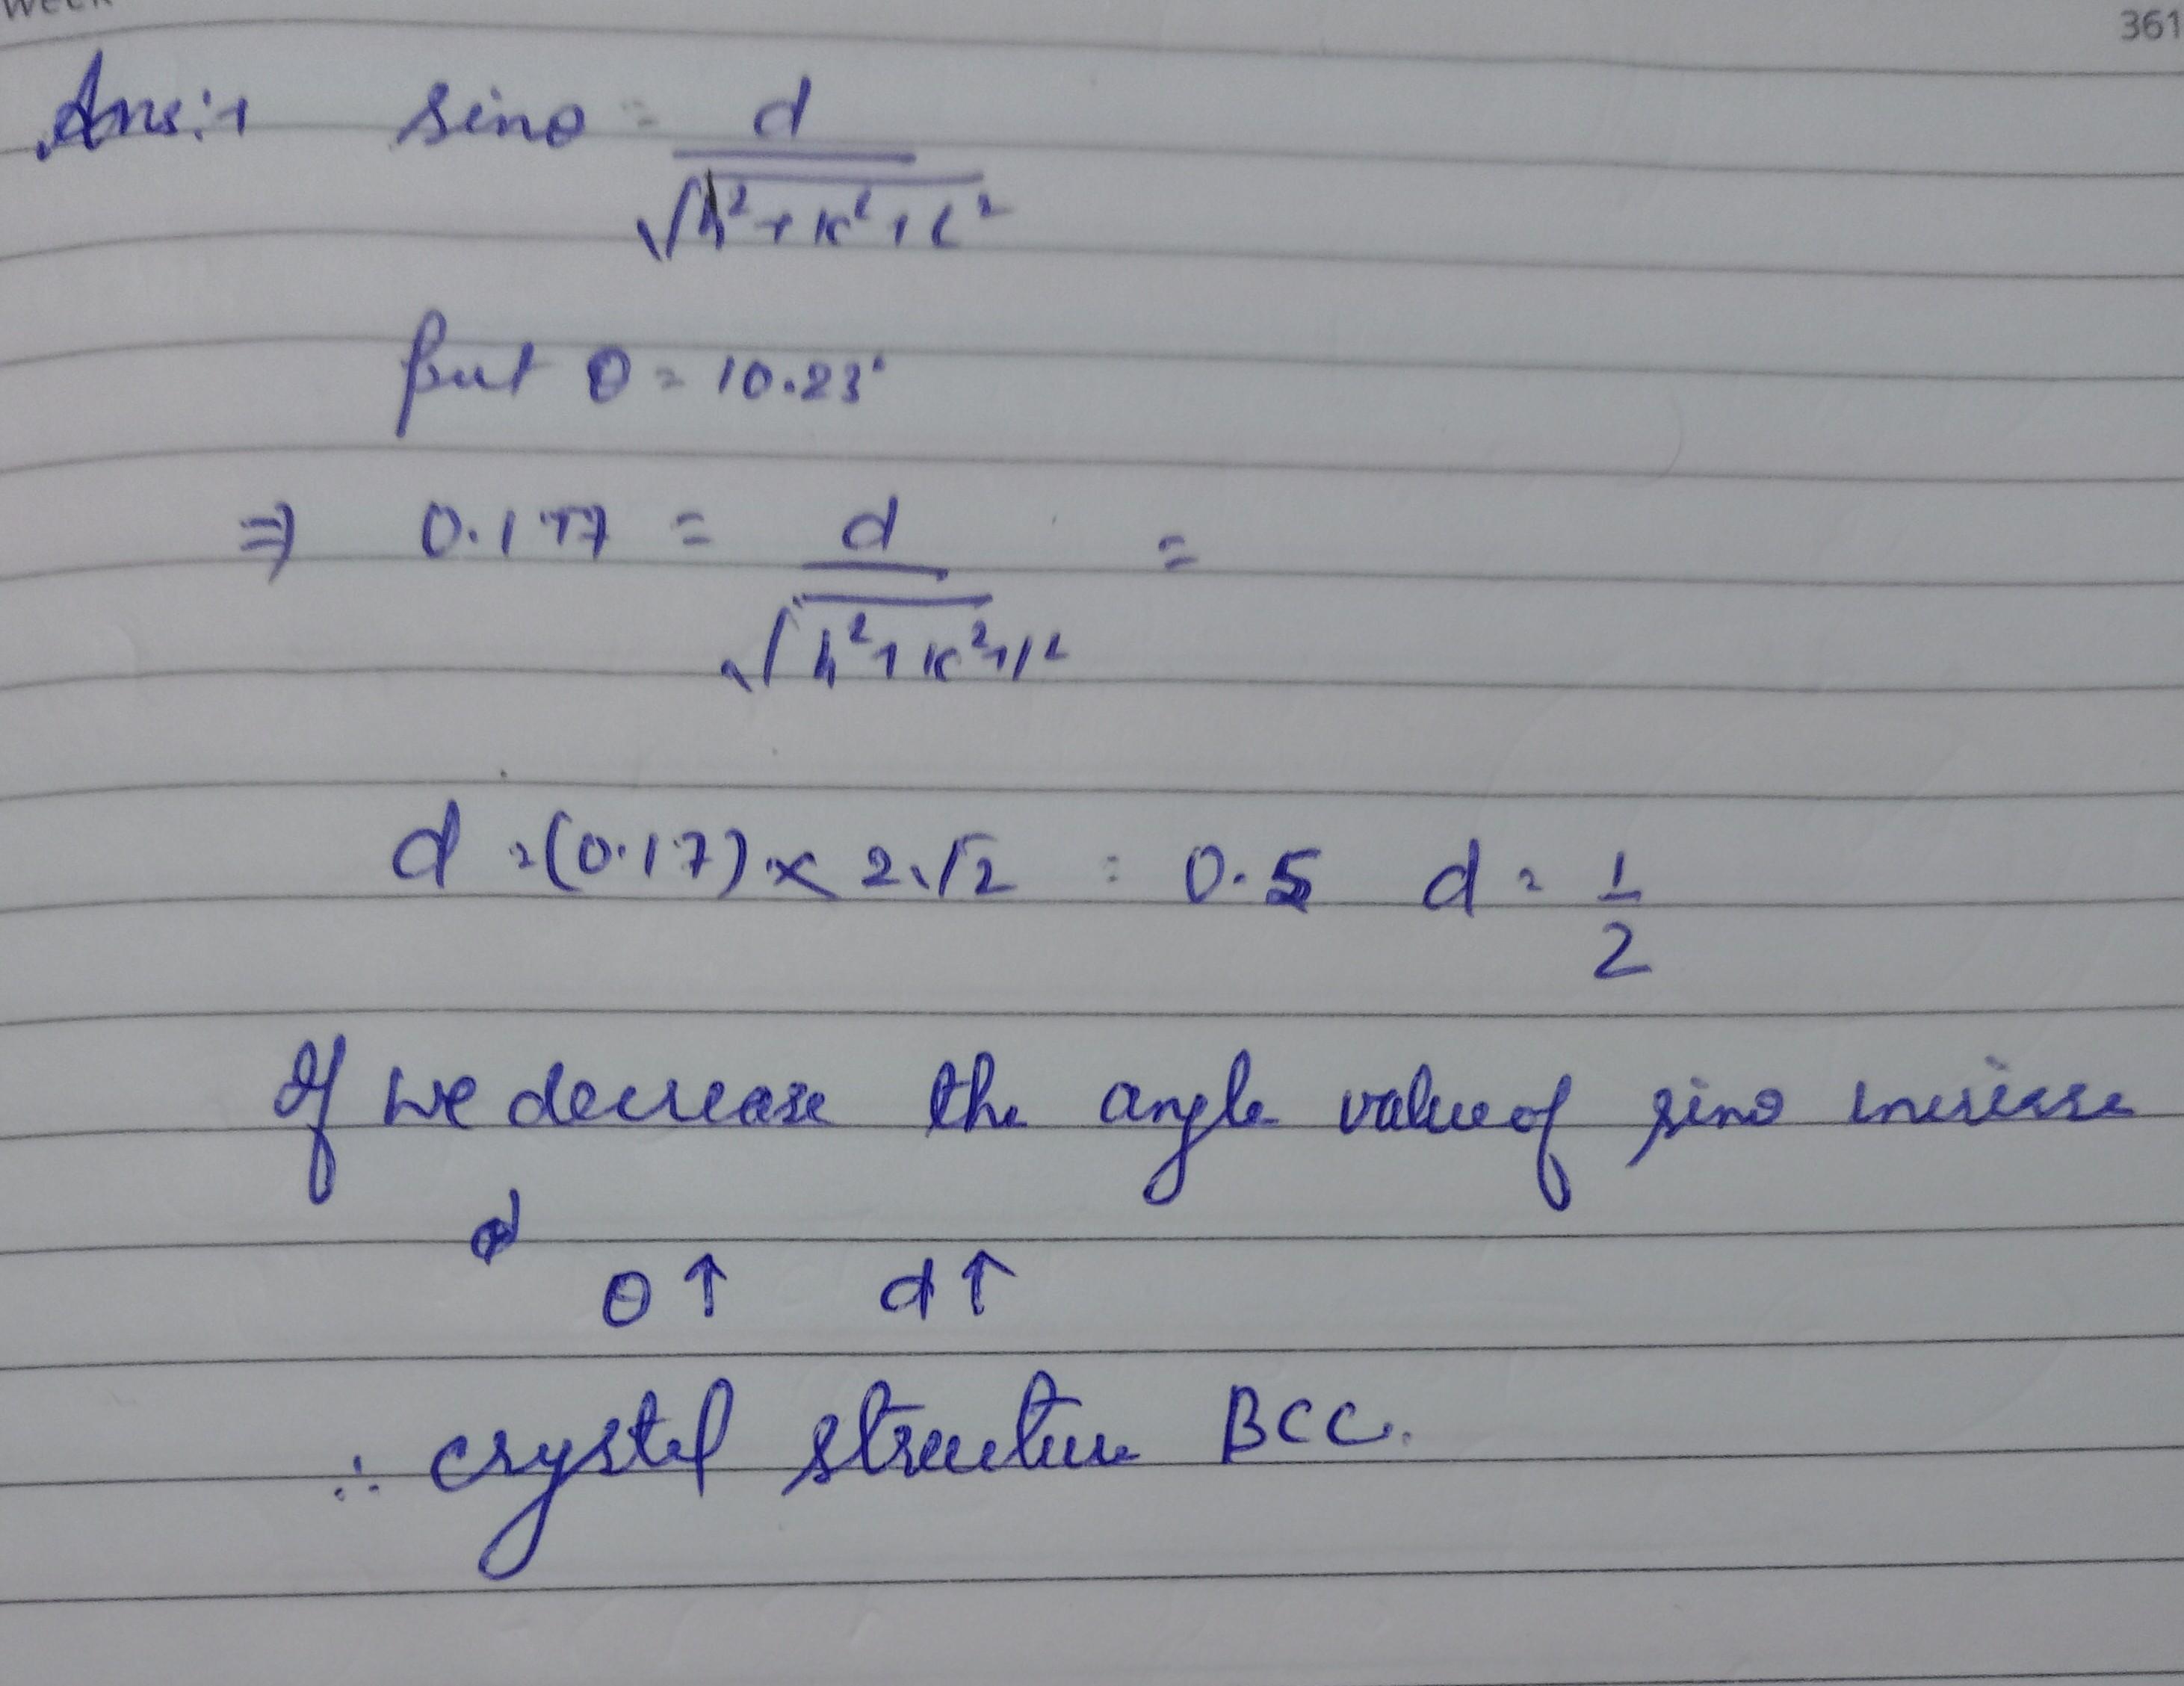 361
Ans:1 sinθ = d / √h²+k²+l²
put θ = 10.23°
⇒ 0.177 = d / √h²+k²+l² =
d = (0.17) × 2√2 = 0.5 d = 1/2
If we decrease the angle value of sinθ increase
d
θ↑ d↑
∴ crystel structure BCC.